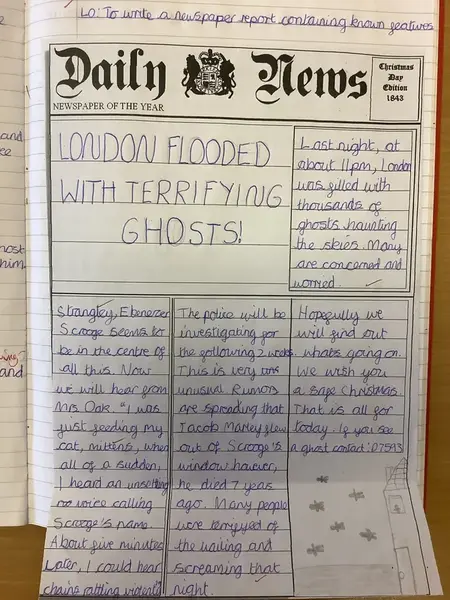 LO: To write a newspaper report containing known features
Daily News
NEWSPAPER OF THE YEAR
Christmas
Day
Edition
1843
LONDON FLOODED
WITH TERRIFYING
GHOSTS!
Last night, at
about 11pm, London
was filled with
thousands of
ghosts haunting
the skies. Many
are concerned and
worried.
Strangley, Ebenezer
Scrooge seems to
be in the centre of
all this. Now
we will hear from
Mrs Oak. "I was
just feeding my
cat, mittens, when
all of a sudden,
I heard an unsetting
voice calling
Scrooge's name.
About five minutes
Later, I could hear
chains rattling violently
The police will be
investigating for
the following 2 weeks.
This is very
unusual. Rumors
are spreading that
Jacob Marley flew
out of Scrooge's
window however,
he died 7 years
ago. Many people
were terryfyed of
the wailing and
screaming that
night.
Hopefully we
will find out
whats going on.
We wish you
a safe Christmas.
That is all for
today. If you see
a ghost contact: 07593
and
ee
host
him.
and